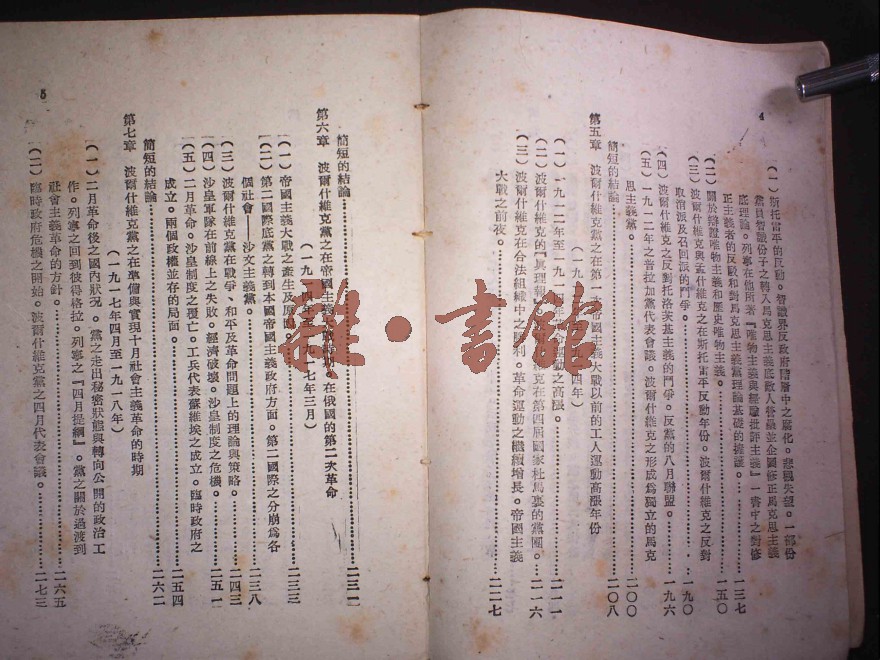 4
(一)斯托雷平的反動。智識界反政府階層中之腐化。悲觀失望。一部份
黨員智識份子之轉入馬克思主義底敵人營壘並企圖修正馬克思主義
底理論。列寧在他所著『唯物主義與經驗批評主義』一書中之對修
正主義者的反駁和對馬克思主義黨理論基礎的擁護。……一三七
(二)關於辯證唯物主義和歷史唯物主義。……一五〇
(三)波爾什維克與孟什維克之在斯托雷平反動年份。波爾什維克之反對
取消派及召回派的鬥爭。……一九〇
(四)波爾什維克之反對托洛茨基主義的鬥爭。反黨的八月聯盟。……一九六
(五)一九一二年之普拉加黨代表會議。波爾什維克之形成爲獨立的馬克
思主義黨。……二〇〇
簡短的結論……二〇八
第五章 波爾什維克黨之在第一次帝國主義大戰以前的工人運動高漲年份
(一九一二年至一九一四年)
(一)一九一二年至一九一四年 運動之高漲。……二一一
(二)波爾什維克的『眞理報』 維克在第四屆國家杜馬裏的黨團。……二一六
(三)波爾什維克在合法組織中之勝利。革命運動之繼續增長。帝國主義
大戰之前夜。……二二七
雜·書館
5
簡短的結論……二三一
第六章 波爾什維克黨之在帝國主義大戰時期。在俄國的第二次革命
(一九一四年至一九一七年三月)
(一)帝國主義大戰之產生及原因。……二三三
(二)第二國際底黨之轉到本國帝國主義政府方面。第二國際之分崩爲各
個社會——沙文主義黨。……二三八
(三)波爾什維克黨在戰爭、和平及革命問題上的理論與策略。……二四三
(四)沙皇軍隊在前線上之失敗。經濟破壞。沙皇制度之危機。……二五一
(五)二月革命。沙皇制度之覆亡。工兵代表蘇維埃之成立。臨時政府之
成立。兩個政權並存的局面。……二五四
簡短的結論……二六二
第七章 波爾什維克黨之在準備與實現十月社會主義革命的時期
(一九一七年四月至一九一八年)
(一)二月革命後之國內狀況。黨之走出秘密狀態與轉向公開的政治工
作。列寧之回到彼得格拉。列寧之『四月提綱』。黨之關於過渡到
社會主義革命的方針。……二六五
(二)臨時政府危機之開始。波爾什維克黨之四月代表會議。……二七三